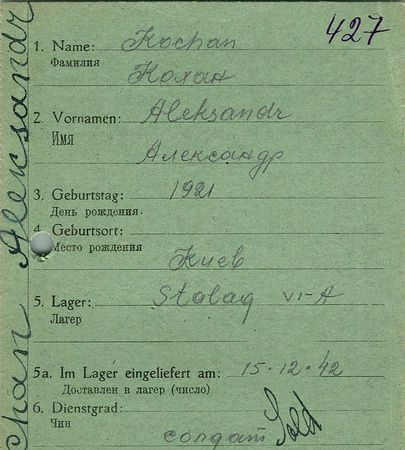 427
1. Name: Kochan
Фамилия
Кохан
2. Vornamen: Aleksandr
Имя
Александр
3. Geburtstag: 1921
День рождения.
4. Geburtsort:
Место рождения
Киев
5. Lager: Stalag VI-A
Лагер
5a. Im Lager eingeliefert am: 15.12.42
Доставлен в лагер (число)
6. Dienstgrad:
Чин
солдат Sold
chan Aleksandr